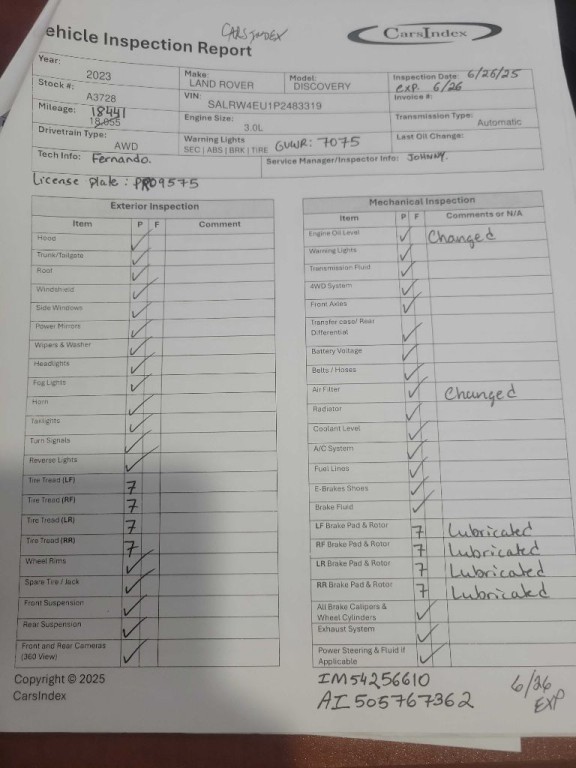 CARSINDEX
ehicle Inspection Report
CarsIndex
Year: 2023
Make: LAND ROVER
Model: DISCOVERY
Inspection Date: 6/26/25
exp. 6/26
Stock #: A3728
VIN: SALRW4EU1P2483319
Invoice #:
Mileage: 18441
18,055
Engine Size: 3.0L
Transmission Type: Automatic
Drivetrain Type: AWD
Warning Lights
SEC | ABS | BRK | TIRE GVWR: 7075
Last Oil Change:
Tech Info: Fernando.
Service Manager/Inspector Info: JOHNNY.
License plate: PRO9575
Exterior Inspection
Item P F Comment
Hood ✓
Trunk/Tailgate ✓
Roof ✓
Windshield ✓
Side Windows ✓
Power Mirrors ✓
Wipers & Washer ✓
Headlights ✓
Fog Lights ✓
Horn ✓
Tailights ✓
Turn Signals ✓
Reverse Lights ✓
Tire Tread (LF) 7
Tire Tread (RF) 7
Tire Tread (LR) 7
Tire Tread (RR) 7
Wheel Rims ✓
Spare Tire / Jack ✓
Front Suspension ✓
Rear Suspension ✓
Front and Rear Cameras
(360 View) ✓
Mechanical Inspection
Item P F Comments or N/A
Engine Oil Level ✓ Changed
Warning Lights ✓
Transmission Fluid ✓
4WD System ✓
Front Axles ✓
Transfer case/ Rear
Differential ✓
Battery Voltage ✓
Belts / Hoses ✓
Air Filter ✓ Changed
Radiator ✓
Coolant Level ✓
A/C System ✓
Fuel Lines ✓
E-Brakes Shoes ✓
Brake Fluid ✓
LF Brake Pad & Rotor 7 Lubricated
RF Brake Pad & Rotor 7 Lubricated
LR Brake Pad & Rotor 7 Lubricated
RR Brake Pad & Rotor 7 Lubricated
All Brake Calipers &
Wheel Cylinders ✓
Exhaust System ✓
Power Steering & Fluid if
Applicable ✓
Copyright © 2025
CarsIndex
IM54256610
AI505767362
6/26
EXP